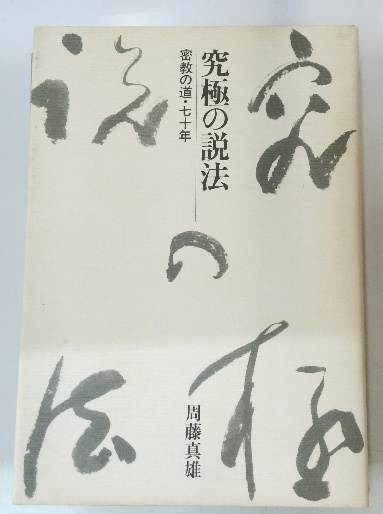 究極の説法
密教の道・七十年
究極
の
説法
周藤真雄